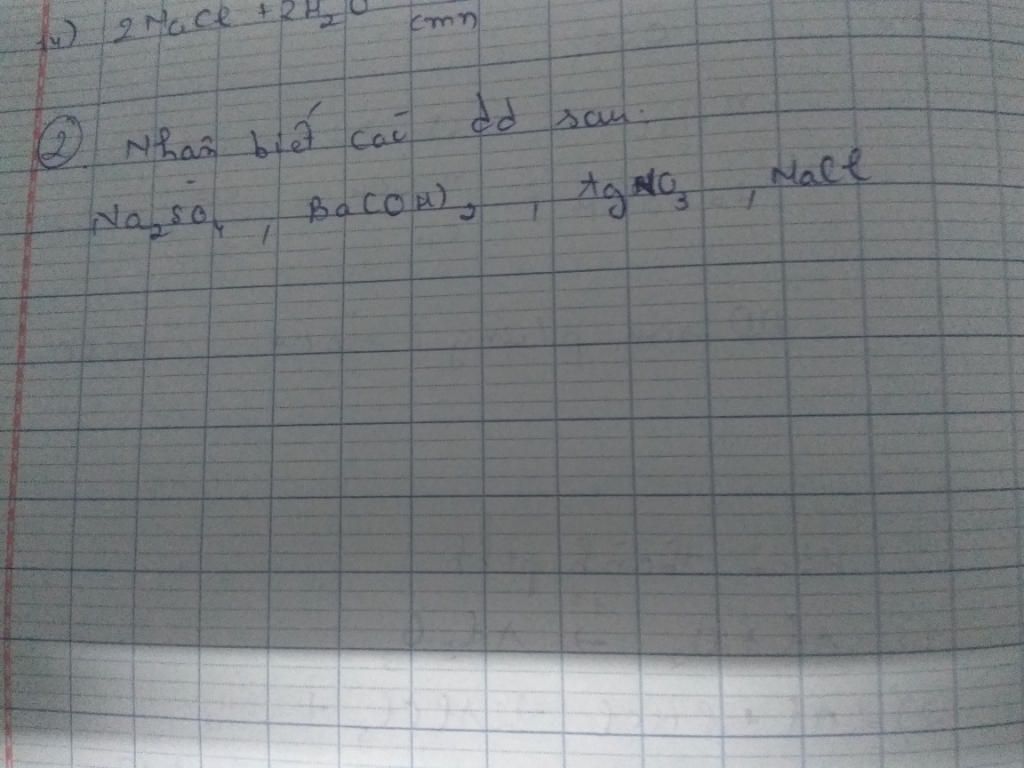 4) 2NaCl + 2H₂O (mn)
② Nhận biết các dd sau:
Na₂SO₄, Ba(OH)₂, AgNO₃, NaCl